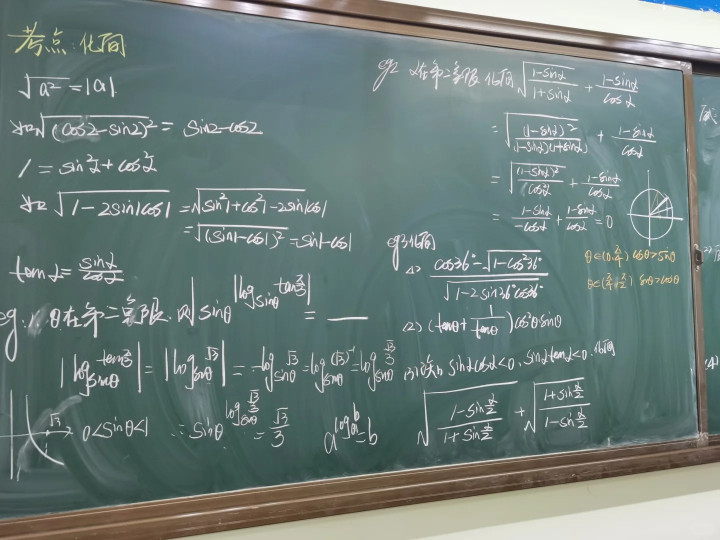 考点:化简
√a² = |a|
如√(cos2-sin2)² = sin2-cos2
1 = sin²α+cos²α
如√1-2sin1cos1 = √sin²1+cos²1-2sin1cos1
= √(sin1-cos1)² = sin1-cos1
tanα = sinα/cosα
eg1. θ在第二象限, 则|sinθ^|log_sinθ tan π/3| = ___
|log_sinθ tan π/3| = |log_sinθ √3| = -log_sinθ √3 = log_sinθ (√3)⁻¹ = log_sinθ √3/3
√3
0<sinθ<1
= sinθ^log_sinθ √3/3 = √3/3
a^log_a b = b
eg2 α在第二象限 化简 √(1-sinα)/(1+sinα) + (1-sinα)/cosα
= √(1-sinα)²/(1-sinα)(1+sinα) + (1-sinα)/cosα
= √(1-sinα)²/cos²α + (1-sinα)/cosα
= (1-sinα)/-cosα + (1-sinα)/cosα = 0
θ∈(0,π/4) cosθ>sinθ
θ∈(π/4,π/2) sinθ>cosθ
eg3化简
(1) (cos36°-√1-cos²36°)/√1-2sin36°cos36°
(2) (tanθ+1/tanθ)cosθsinθ
(3) sinαcosα<0, sinαtanα<0, 化简
√(1-sin α/2)/(1+sin α/2) + √(1+sin α/2)/(1-sin α/2)